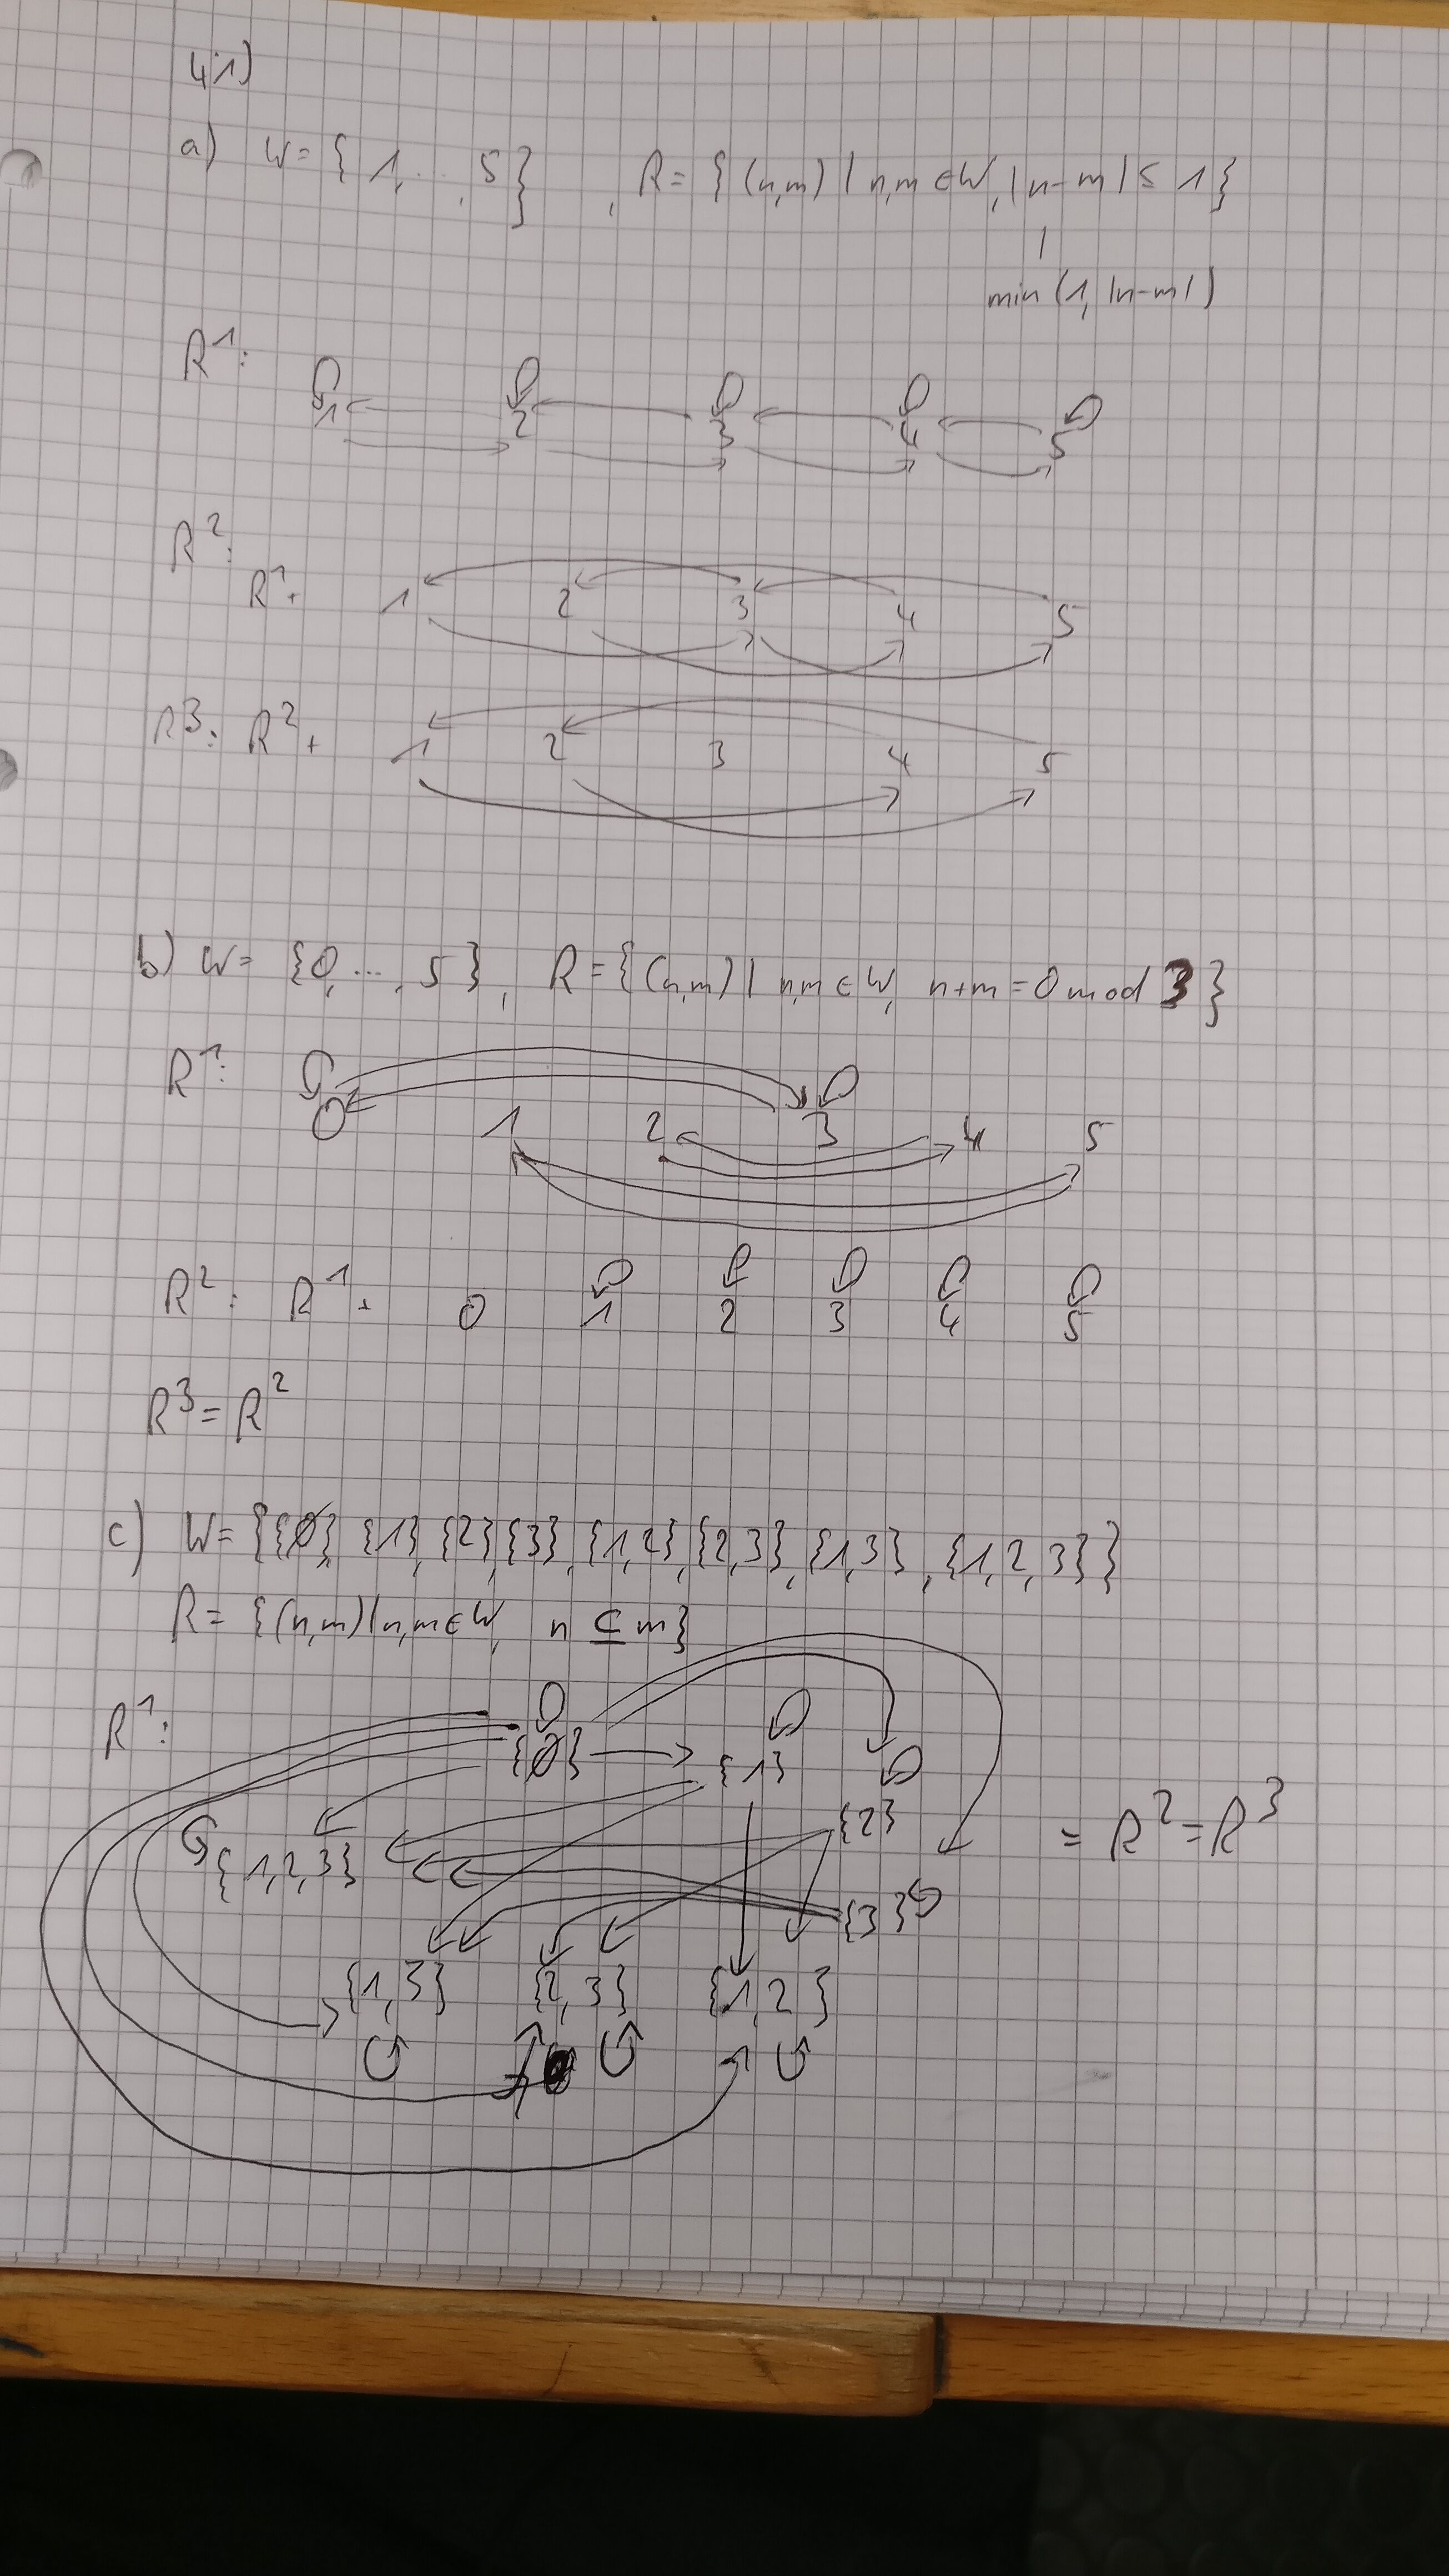 4.1)
a) W = { 1, ... , 5 } , R = { (n,m) | n,m ∈ W, |n-m| ≤ 1 }
min (1, |n-m|)
R¹: 1 2 3 4 5
R²:
R¹ + 1 2 3 4 5
R³: R² + 1 2 3 4 5
b) W = {0, ... , 5 }, R = { (n,m) | n,m ∈ W, n+m = 0 mod 3 }
R¹: 0 1 2 3 4 5
R²: R¹ + 0 1 2 3 4 5
R³ = R²
c) W = {{∅}, {1}, {2}, {3}, {1,2}, {2,3}, {1,3}, {1,2,3}}
R = {(n,m) | n,m ∈ W, n ⊆ m}
R¹: {∅} {1}
{2}
{1,2,3} = R² = R³
{3}
{1,3} {2,3} {1,2}